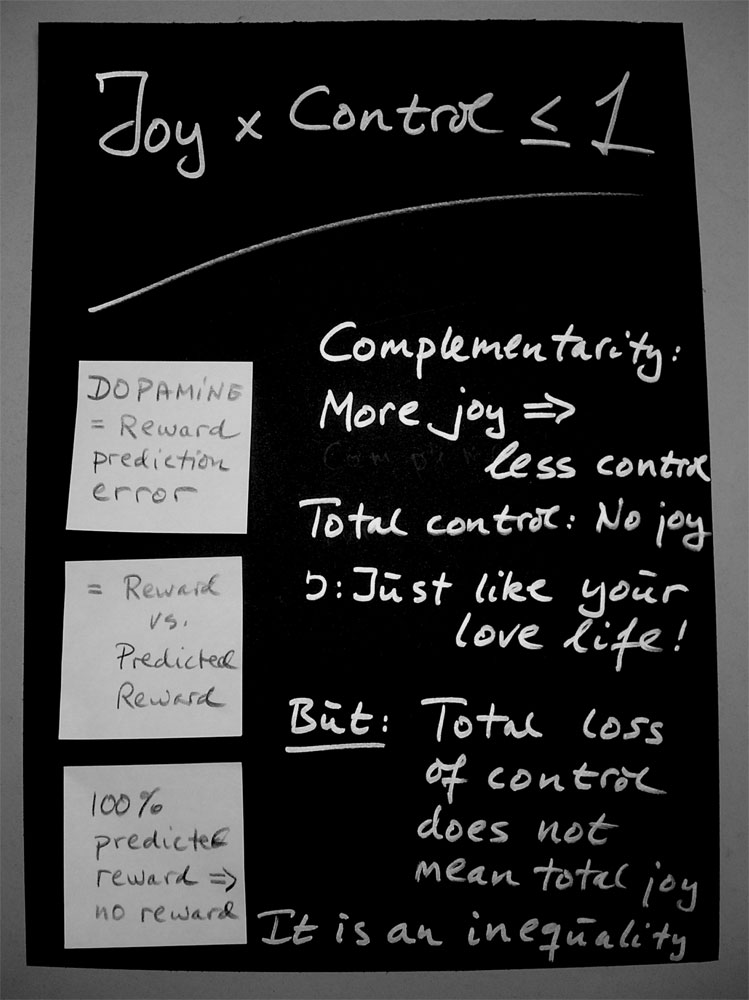 Joy x Control ≤ 1
DOPAMINE
= Reward
prediction
error
= Reward
vs.
Predicted
Reward
100%
predicted
reward ⇒
no reward
Complementarity:
More joy ⇒
less control
Total control: No joy
Ͻ: Just like your
love life!
But: Total loss
of control
does not
mean total joy
It is an inequality